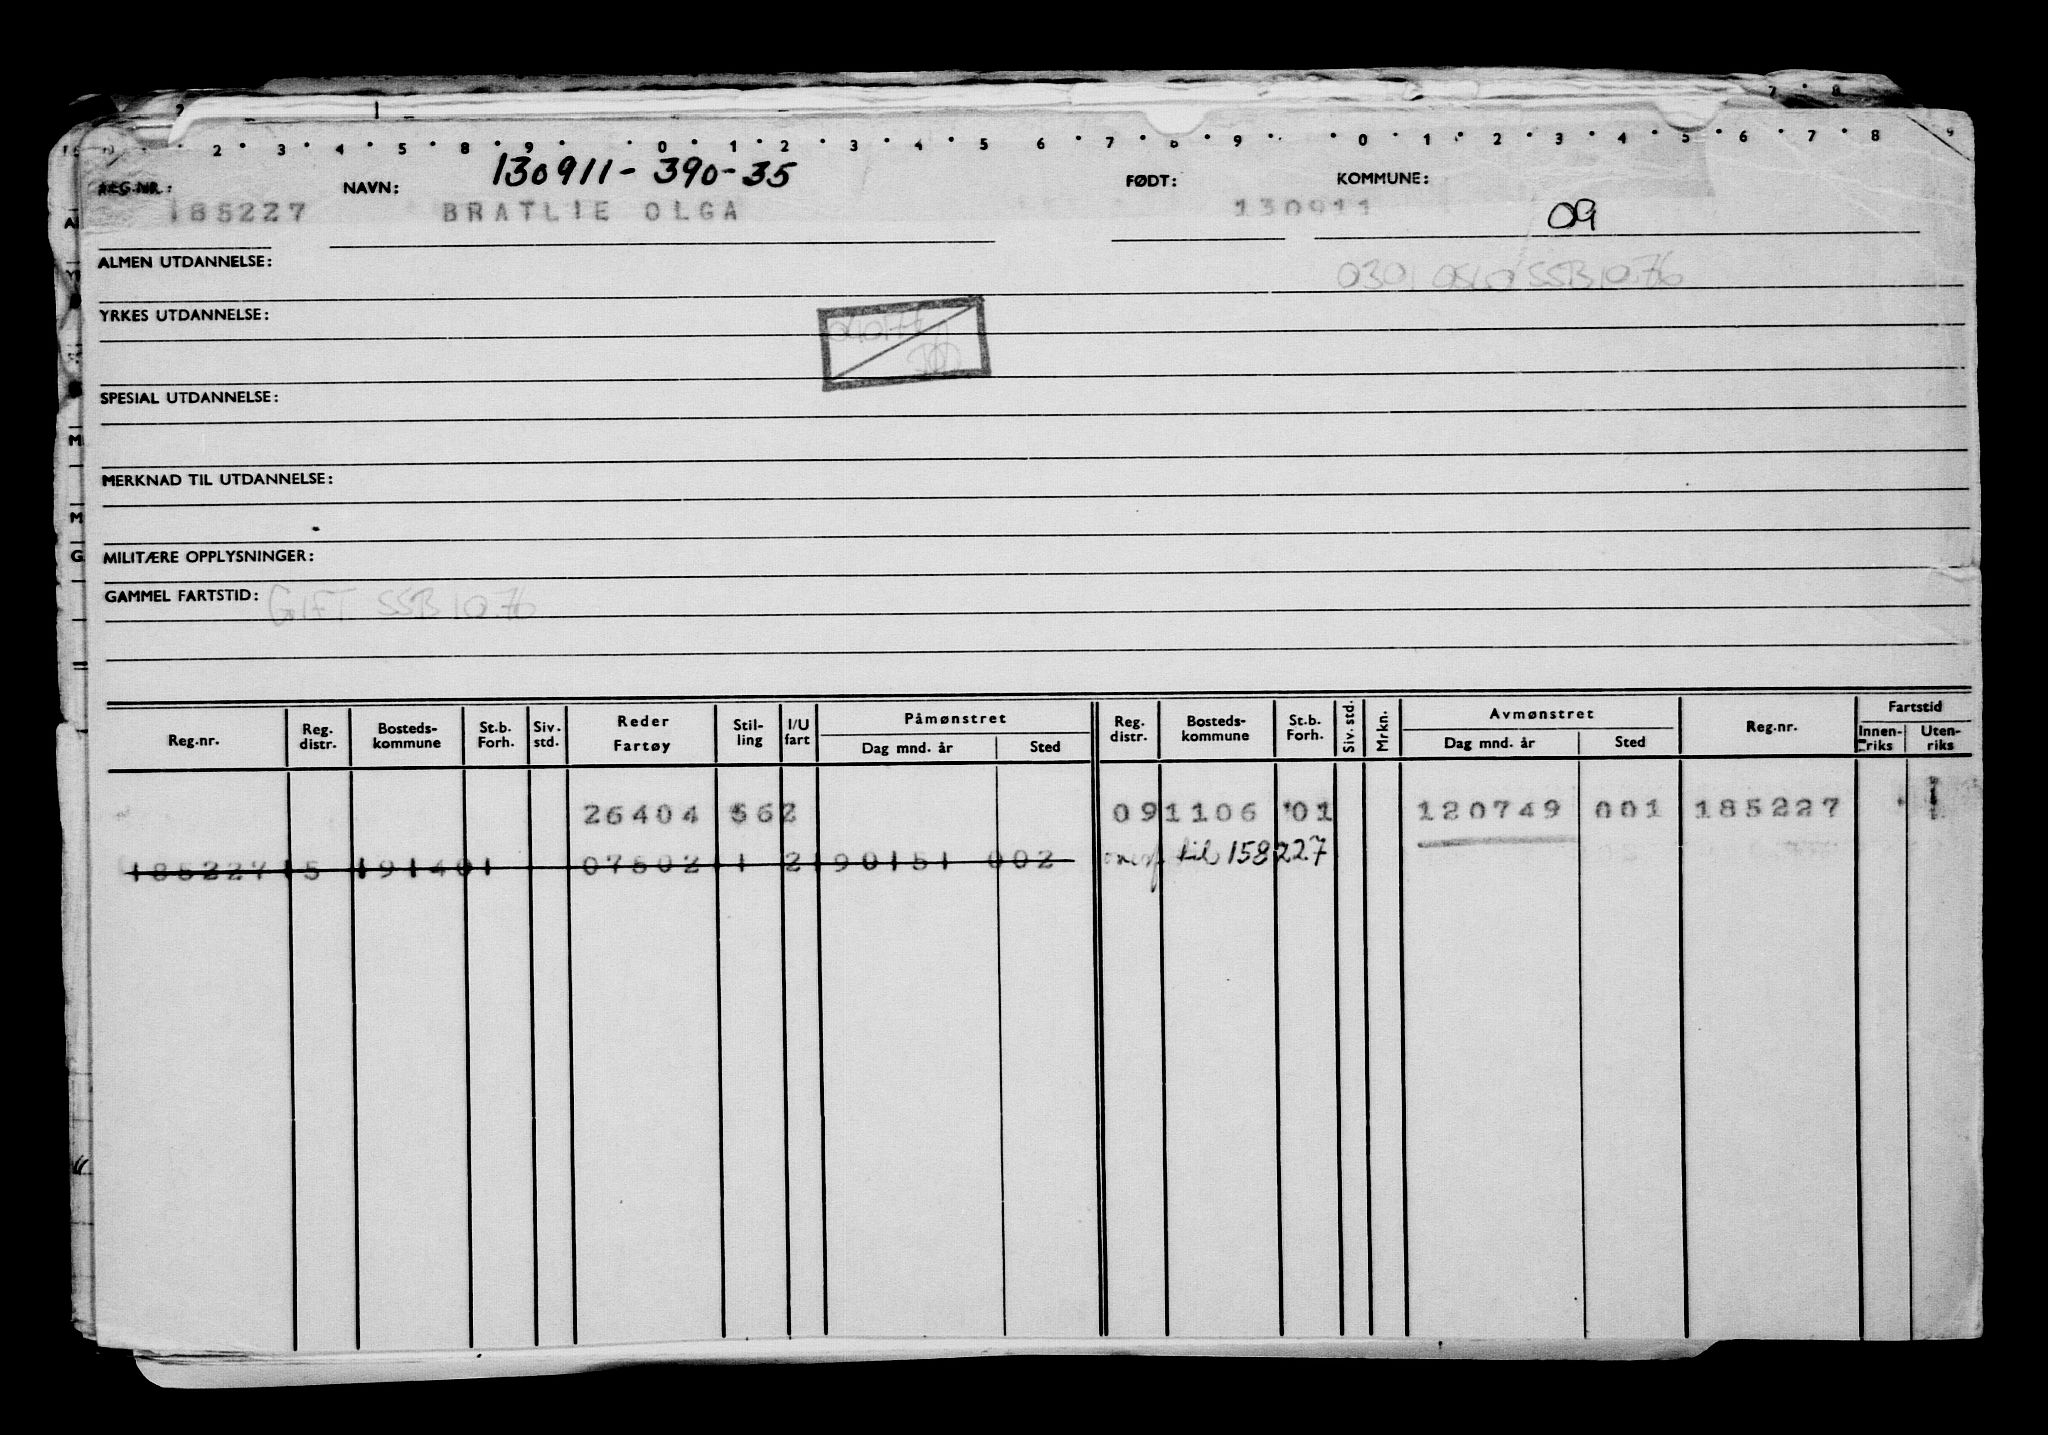 2 3 4 5 8 9 0 1 2 3 4 5 6 7 8 9 0 1 2 3 4 5 6 7 8
130911- 390-35
REG.NR.: NAVN: FØDT: KOMMUNE:
185227 BRATLIE OLGA 130911 09
ALMEN UTDANNELSE:
0301 OSLO SSB 10.76
YRKES UTDANNELSE:
SPESIAL UTDANNELSE:
MERKNAD TIL UTDANNELSE:
MILITÆRE OPPLYSNINGER:
GAMMEL FARTSTID: GIFT SSB 10.76
Reg.nr. Reg. distr. Bosteds- kommune St.b. Forh. Siv. std. Reder Fartøy Stil- ling I/U fart Påmønstret Dag mnd. år Sted Reg. distr. Bosteds- kommune St.b. Forh. Siv. std. Mrkn. Avmønstret Dag mnd. år Sted Reg.nr. Fartstid Innen- riks Uten- riks
26404 562 091106 01 120749 001 185227
185227 15 191401 07502 1 2 190151 002 til 158227